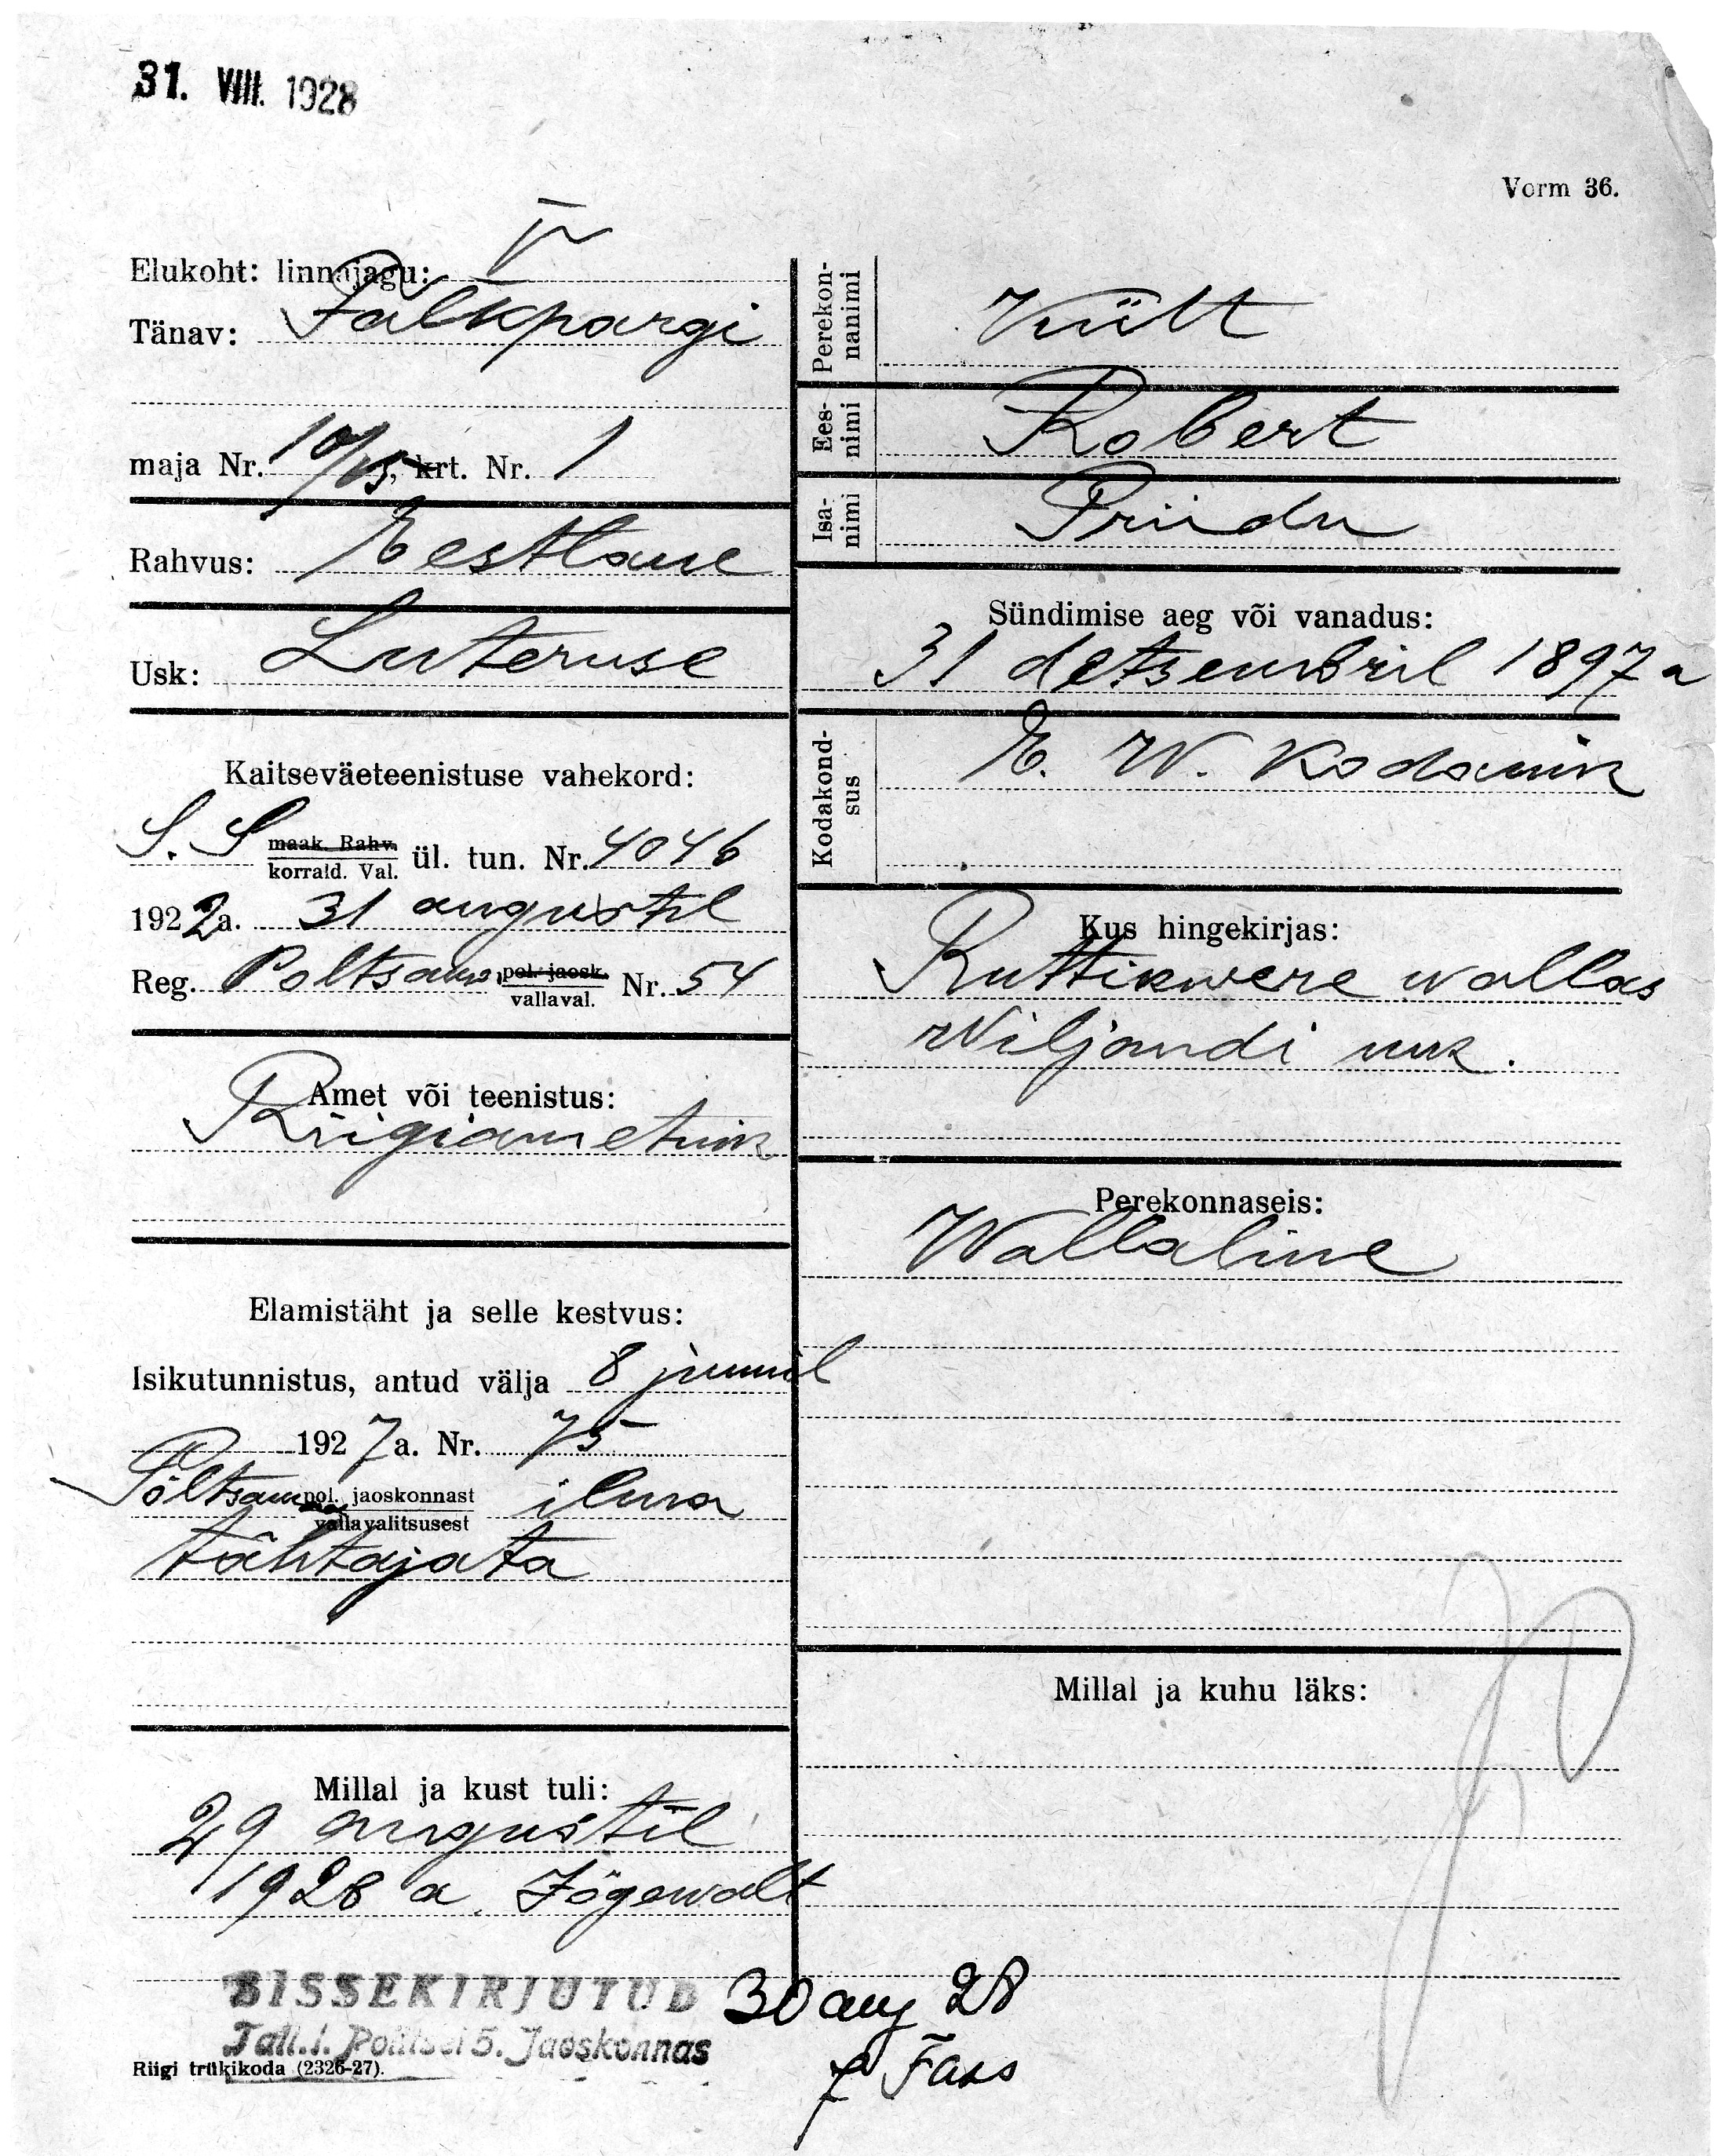 31. VIII. 1928
Vorm 36.
Elukoht: linnajagu: V
Tänav: Falkpargi
maja Nr. 10/15, krt. Nr. 1
Rahvus: Eestlane
Usk: Luteruse
Kaitseväeteenistuse vahekord:
S. S maak. Rahv. korrald. Val. ül. tun. Nr. 4046
1922a. 31 augustil
Reg. Poltsama pol. jaosk. vallaval. Nr. 54
Amet või teenistus:
Riigiametnik
Elamistäht ja selle kestvus:
Isikutunnistus, antud välja 8 juunil
1927a. Nr. 75
Põltsama pol. jaoskonnast vallavalitsusest ilma
tähtajata
Millal ja kust tuli:
29 augustil
1928 a. Jõgewalt
Perekonnanimi Küllt
Eesnimi Robert
Isanimi Priidu
Sündimise aeg või vanadus:
31 detsembril 1897 a
Kodakondsus E. W. Kodanik
Kus hingekirjas:
Ruttikwere wallas
Wiljandi mk.
Perekonnaseis:
Wallaline
Millal ja kuhu läks:
SISSEKIRJUTUD 30 aug 28
Tall. l. Politsei 5. Jaoskonnas
Riigi trükikoda (2326-27).